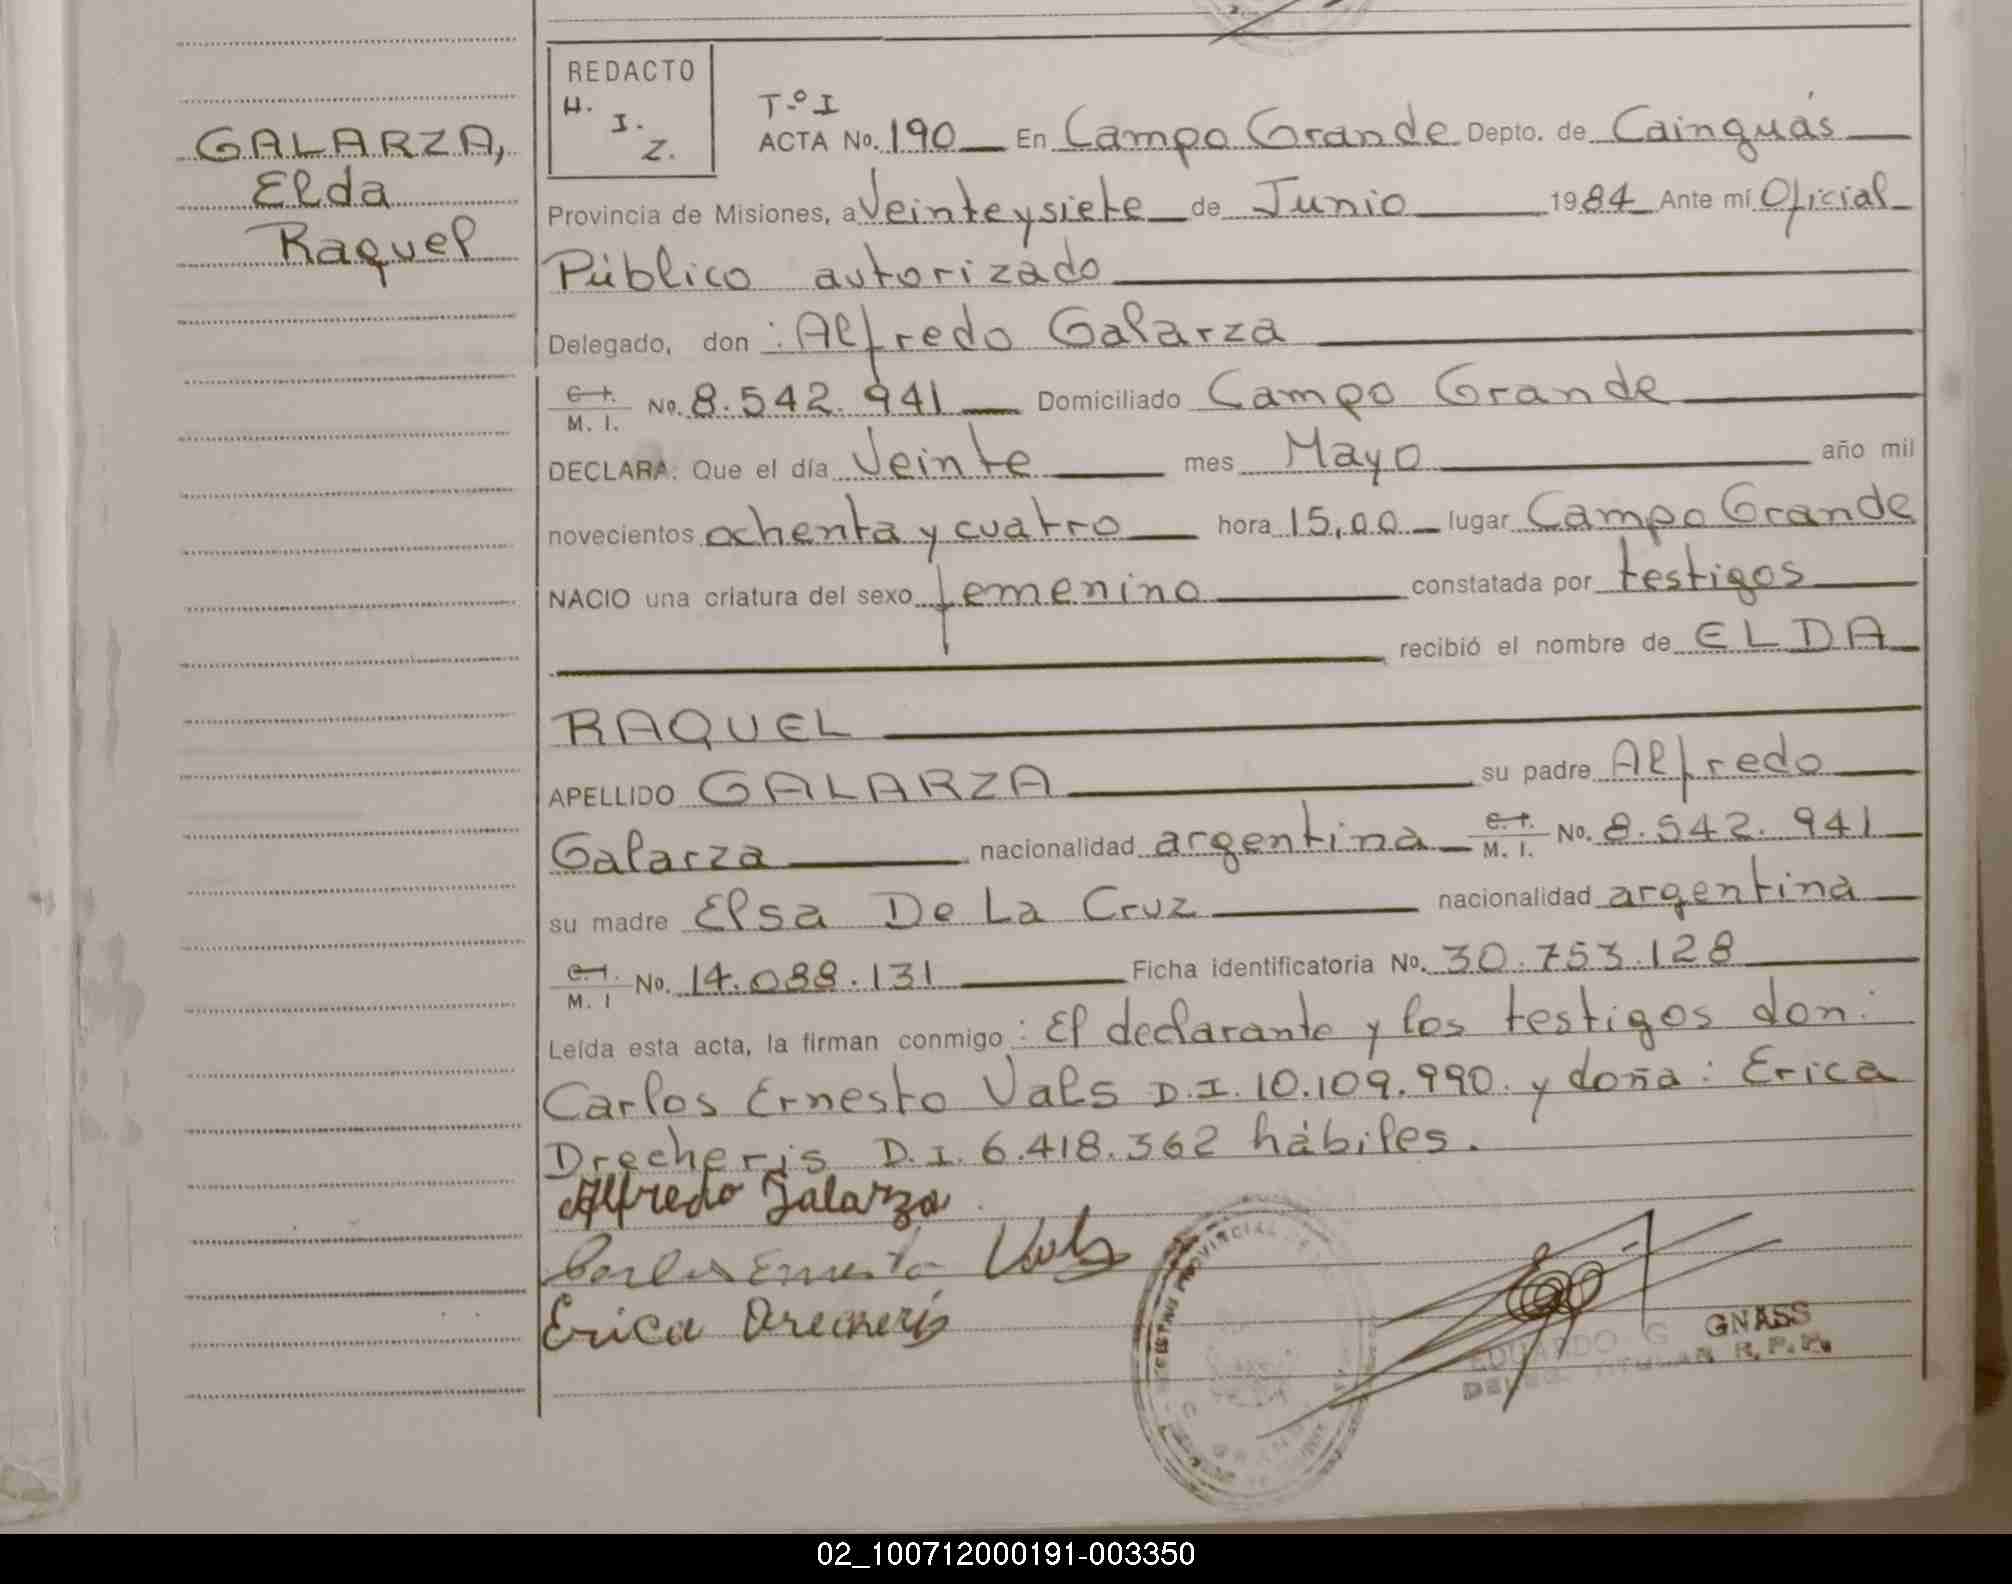 GALARZA,
Elda
Raquel
REDACTO
H.
I.
Z.
T.º I
ACTA No. 190 En Campo Grande Depto. de Cainguás
Provincia de Misiones, a Veinteysiete de Junio 1984 Ante mí Oficial
Público autorizado
Delegado, don : Alfredo Galarza
C. I. / M. I. No. 8.542.941 Domiciliado Campo Grande
DECLARA: Que el día Veinte mes Mayo año mil
novecientos ochenta y cuatro hora 15,00 lugar Campo Grande
NACIO una criatura del sexo femenino constatada por testigos
recibió el nombre de ELDA
RAQUEL
APELLIDO GALARZA su padre Alfredo
Galarza nacionalidad argentina C. I. / M. I. No. 8.542.941
su madre Elsa De La Cruz nacionalidad argentina
C. I. / M. I No. 14.088.131 Ficha identificatoria No. 30.753.128
Leída esta acta, la firman conmigo : El declarante y los testigos don:
Carlos Ernesto Vals D.I. 10.109.990. y doña: Erica
Drecheris D.I. 6.418.362 hábiles.
Alfredo Galarza
Carlos Ernesto Vals
Erica Drecheris
PROVINCIAL
EDUARDO G GNASS
TITULAR R.P.P.
02_100712000191-003350